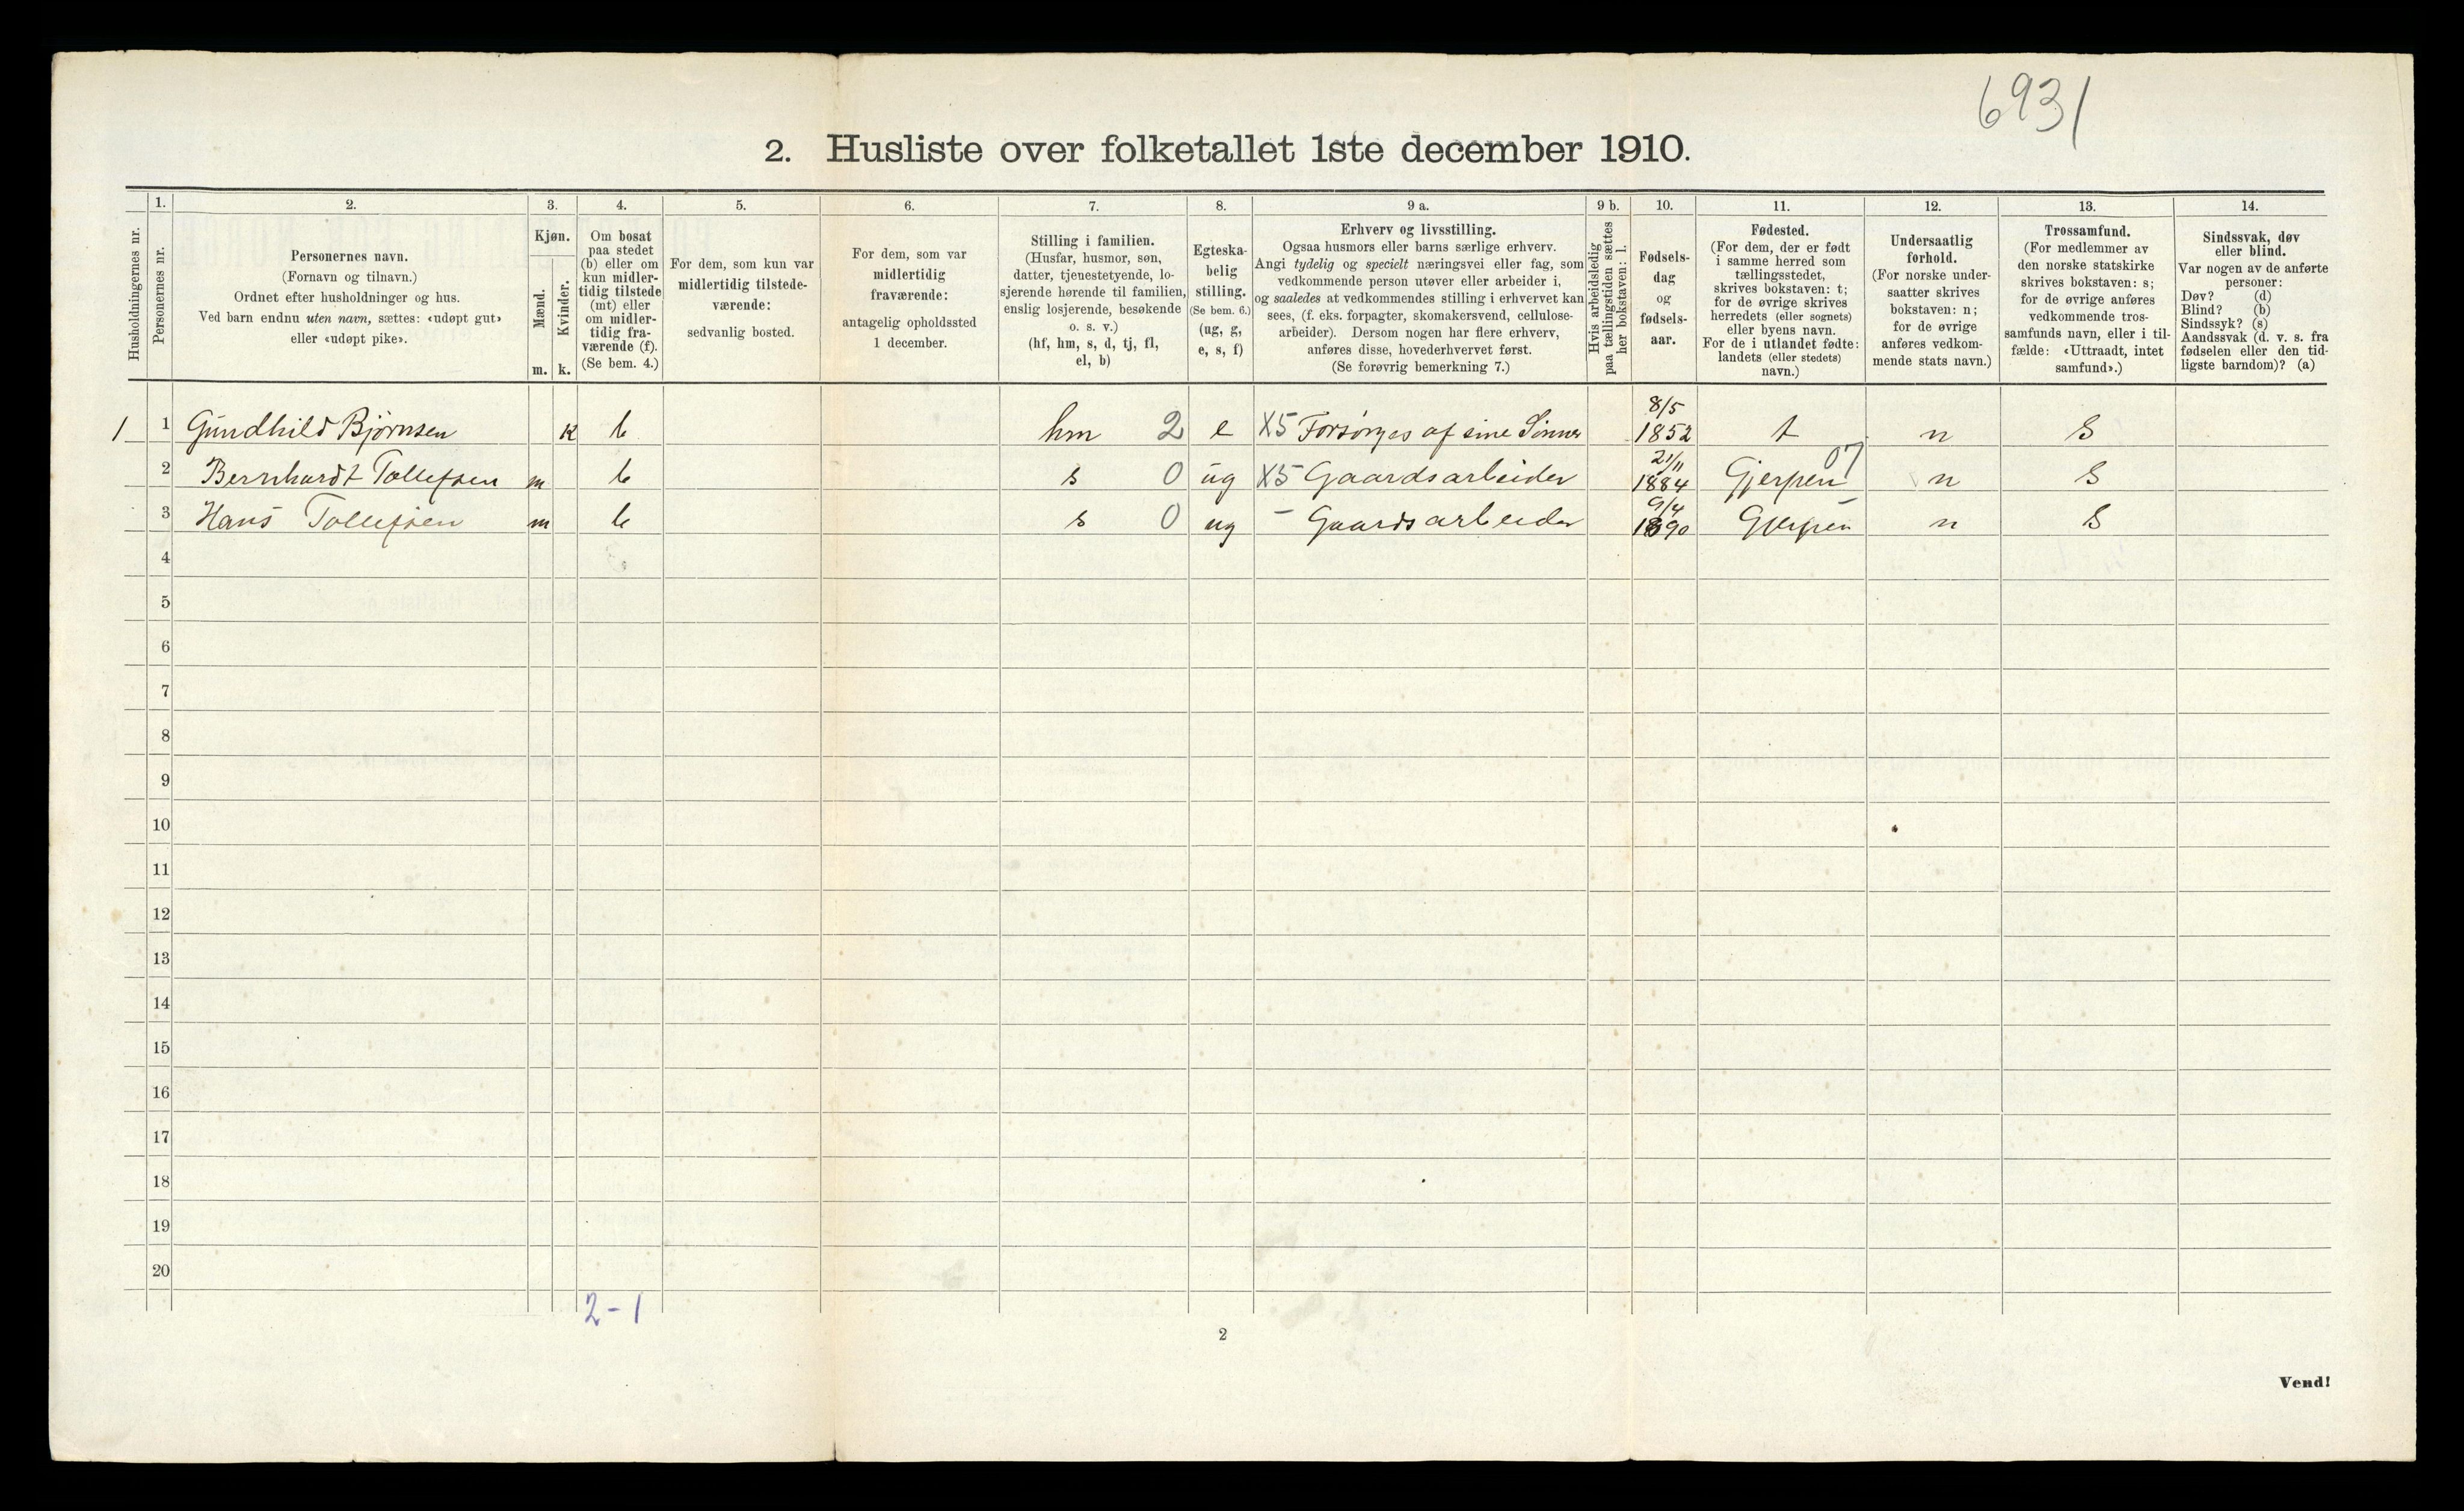 6931
2. Husliste over folketallet 1ste december 1910.
1. 2. 3. 4. 5. 6. 7. 8. 9 a. 9 b. 10. 11. 12. 13. 14.
Husholdningernes nr.
Personernes nr.
Personernes navn.
(Fornavn og tilnavn.)
Ordnet efter husholdninger og hus.
Ved barn endnu uten navn, sættes: «udøpt gut»
eller «udøpt pike».
Kjøn.
Mænd.
Kvinder.
m. k.
Om bosat
paa stedet
(b) eller om
kun midler-
tidig tilstede
(mt) eller
om midler-
tidig fra-
værende (f).
(Se bem. 4.)
For dem, som kun var
midlertidig tilstede-
værende:
sedvanlig bosted.
For dem, som var
midlertidig
fraværende:
antagelig opholdssted
1 december.
Stilling i familien.
(Husfar, husmor, søn,
datter, tjenestetyende, lo-
sjerende hørende til familien,
enslig losjerende, besøkende
o. s. v.)
(hf, hm, s, d, tj, fl,
el, b)
Egteska-
belig
stilling.
(Se bem. 6.)
(ug, g,
e, s, f)
Erhverv og livsstilling.
Ogsaa husmors eller barns særlige erhverv.
Angi tydelig og specielt næringsvei eller fag, som
vedkommende person utøver eller arbeider i,
og saaledes at vedkommendes stilling i erhvervet kan
sees, (f. eks. forpagter, skomakersvend, cellulose-
arbeider). Dersom nogen har flere erhverv,
anføres disse, hovederhvervet først.
(Se forøvrig bemerkning 7.)
Hvis arbeidsledig
paa tællingstiden sættes
her bokstaven: l.
Fødsels-
dag
og
fødsels-
aar.
Fødested.
(For dem, der er født
i samme herred som
tællingsstedet,
skrives bokstaven: t;
for de øvrige skrives
herredets (eller sognets)
eller byens navn.
For de i utlandet fødte:
landets (eller stedets)
navn.)
Undersaatlig
forhold.
(For norske under-
saatter skrives
bokstaven: n;
for de øvrige
anføres vedkom-
mende stats navn.)
Trossamfund.
(For medlemmer av
den norske statskirke
skrives bokstaven: s;
for de øvrige anføres
vedkommende tros-
samfunds navn, eller i til-
fælde: «Uttraadt, intet
samfund».)
Sindssvak, døv
eller blind.
Var nogen av de anførte
personer:
Døv? (d)
Blind? (b)
Sindssyk? (s)
Aandssvak (d. v. s. fra
fødselen eller den tid-
ligste barndom)? (a)
8/5
1 1 Gundhild Bjørnsen k b hm 2 e X5 Forsørges af sine Sønner 1852 t n S
21/11 07
2 Bernhardt Tollefsen m b s 0 ug X5 Gaardsarbeider 1884 Gjerpen n S
9/4
3 Hans Tollefsen m b s 0 ug - Gaardsarbeider 1890 Gjerpen n S
4
5
6
7
8
9
10
11
12
13
14
15
16
17
18
19
20
2-1
2
Vend!